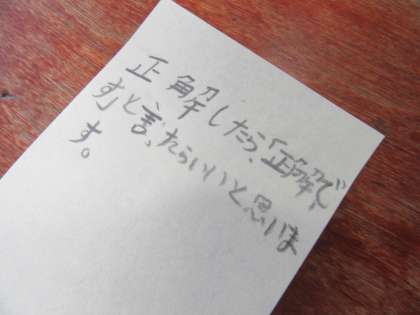 正解したら、「正解で
す」と言ったらいいと思いま
す。